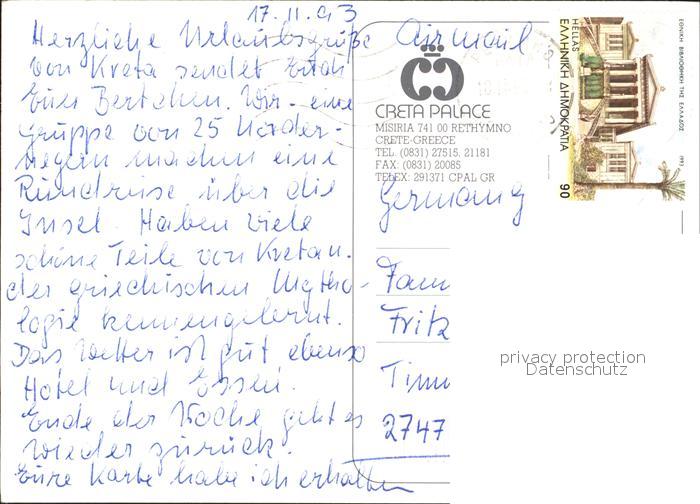 17.11.93
Herzliche Urlaubsgrüße
von Kreta sendet Euch
Euer Bertchen. Wir - eine
Gruppe von 25 Norder-
negern machen eine
Rundreise über die
Insel. Haben viele
schöne Teile von Kreta u.
der griechischen Mytho-
logie kennengelernt.
Das Wetter ist gut ebenso
Hotel und Essen.
Ende der Woche geht es
wieder zurück.
Eure Karte habe ich erhalten
Air mail
CRETA PALACE
MISIRIA 741 00 RETHYMNO
CRETE-GREECE
TEL. (0831) 27515, 21181
FAX: (0831) 20085
TELEX: 291371 CPAL GR
Germany
Fam
Fritz
Timm
2747
HELLAS
ΕΛΛΗΝΙΚΗ ΔΗΜΟΚΡΑΤΙΑ
90
ΕΘΝΙΚΗ ΒΙΒΛΙΟΘΗΚΗ ΤΗΣ ΕΛΛΑΔΟΣ
1993
privacy protection
Datenschutz